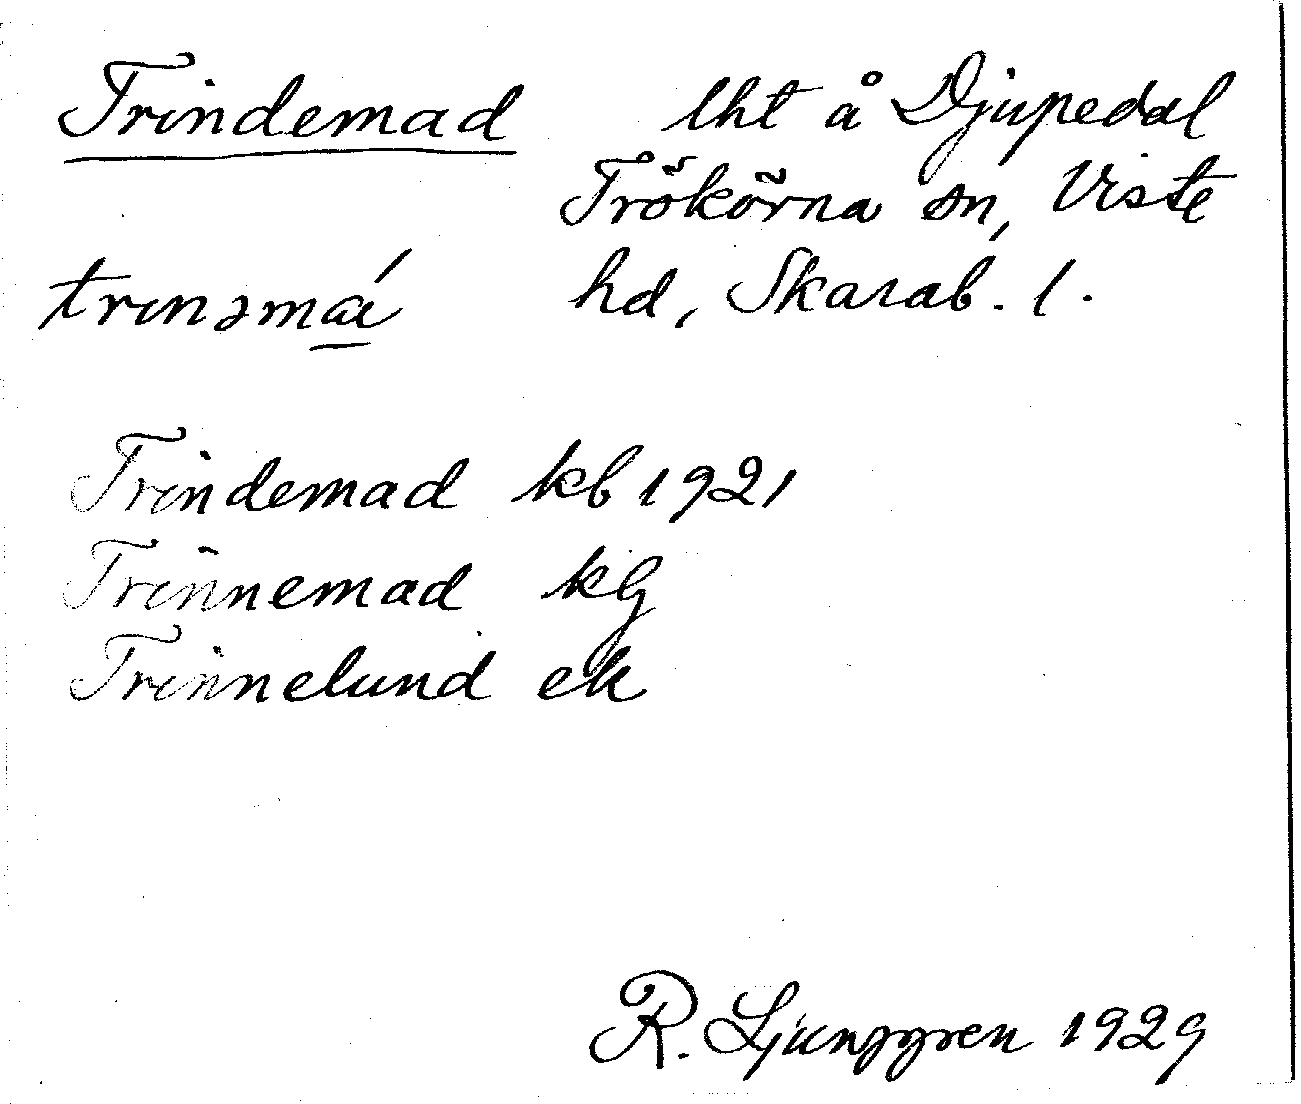 Trindemad lht å Djupedal
Trökörna sn, Viste
trınəmá hd, Skarab. l.
Trindemad kb 1921
Trinnemad kg
Trinnelund ek
R. Ljunggren 1929